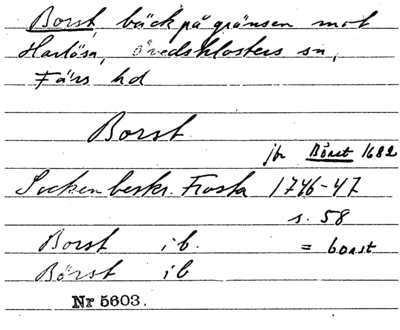 Borst bäck på gränsen mot
Harlösa, Övedsklosters sn,
Färs hd
Borst
jfr Börst 1682
Sockenbeskr. Frosta 1746-47
s. 58
Borst ib. = borst
Börst ib
Nr 5603.